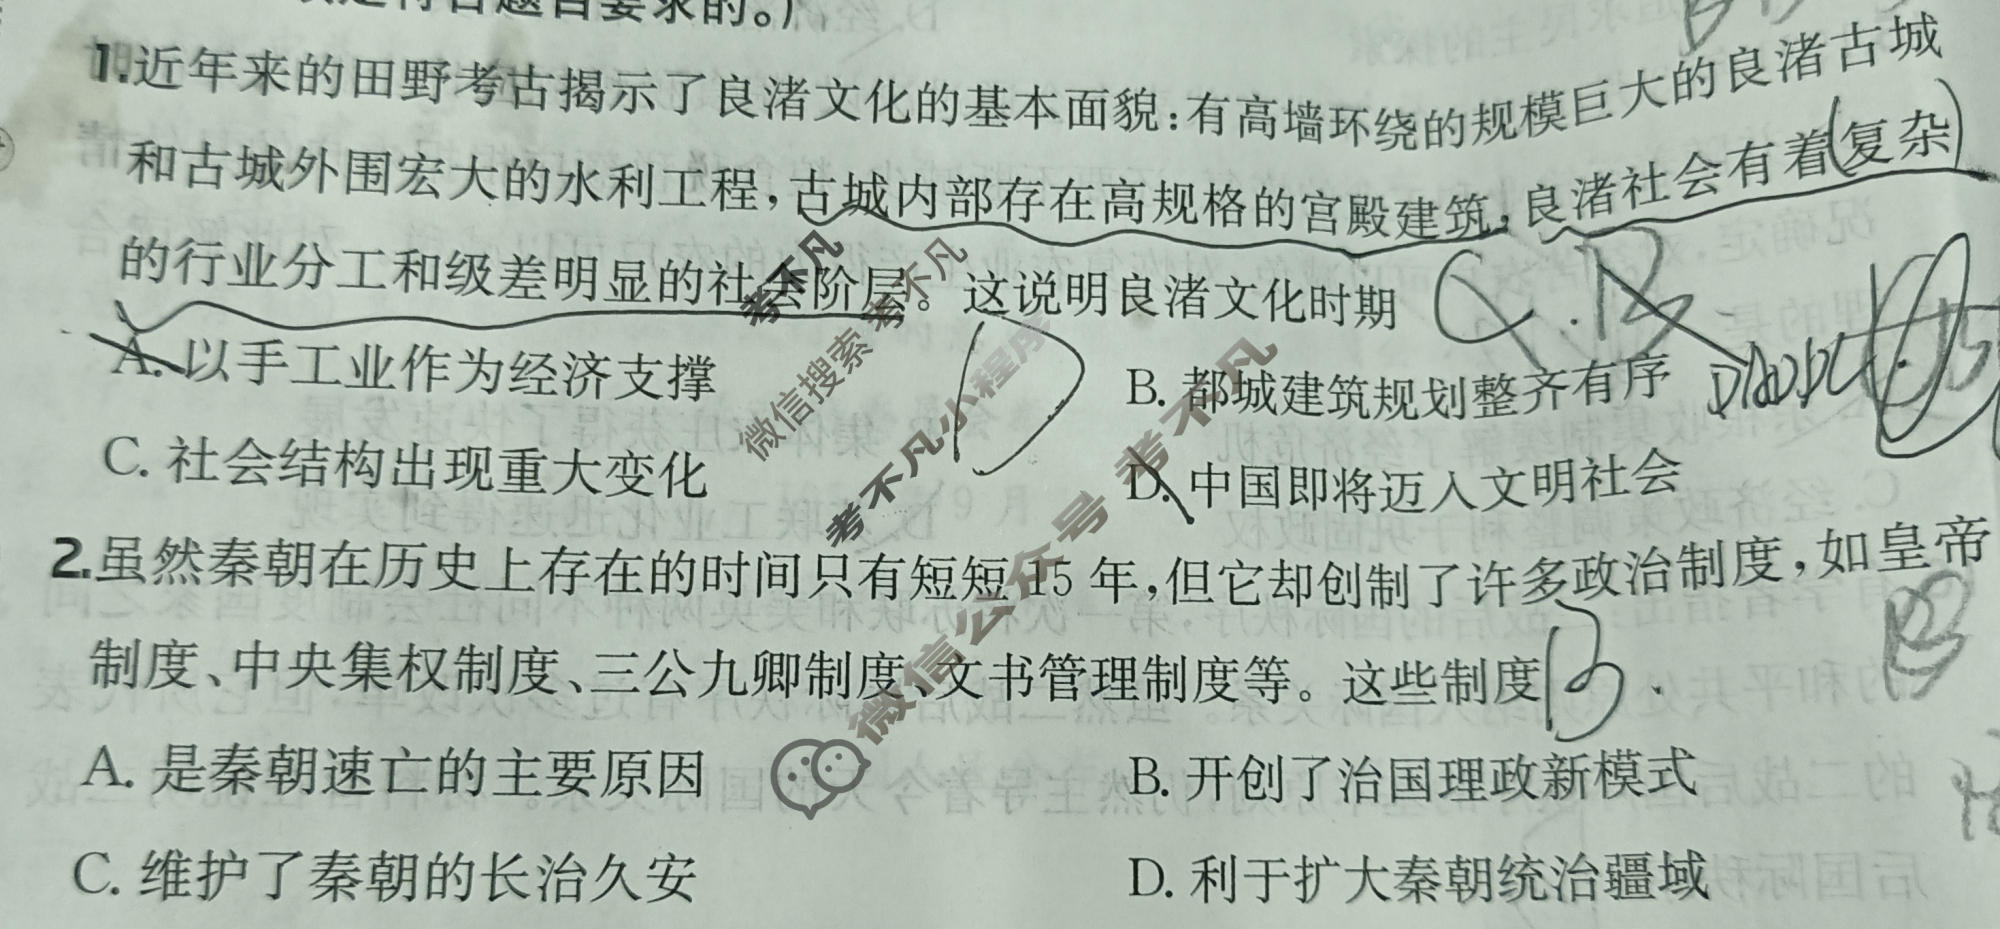 1.近年来的田野考古揭示了良渚文化的基本面貌:有高墙环绕的规模巨大的良渚古城
和古城外围宏大的水利工程,古城内部存在高规格的宫殿建筑,良渚社会有着(复杂)
的行业分工和级差明显的社会阶层。这说明良渚文化时期
A. 以手工业作为经济支撑
B. 都城建筑规划整齐有序
C. 社会结构出现重大变化
D. 中国即将迈入文明社会
D
2.虽然秦朝在历史上存在的时间只有短短 15 年,但它却创制了许多政治制度,如皇帝
制度、中央集权制度、三公九卿制度、文书管理制度等。这些制度
B
A. 是秦朝速亡的主要原因
B. 开创了治国理政新模式
C. 维护了秦朝的长治久安
D. 利于扩大秦朝统治疆域
考不凡 考不凡
微信搜索
考不凡小程序
微信公众号 考不凡